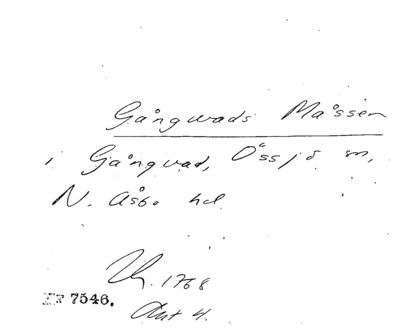 Gångvads Måssen
i Gångvad, Össjö sn,
N. Åsbo hd
Lh. 1768
Akt 4.
Nr 7546.